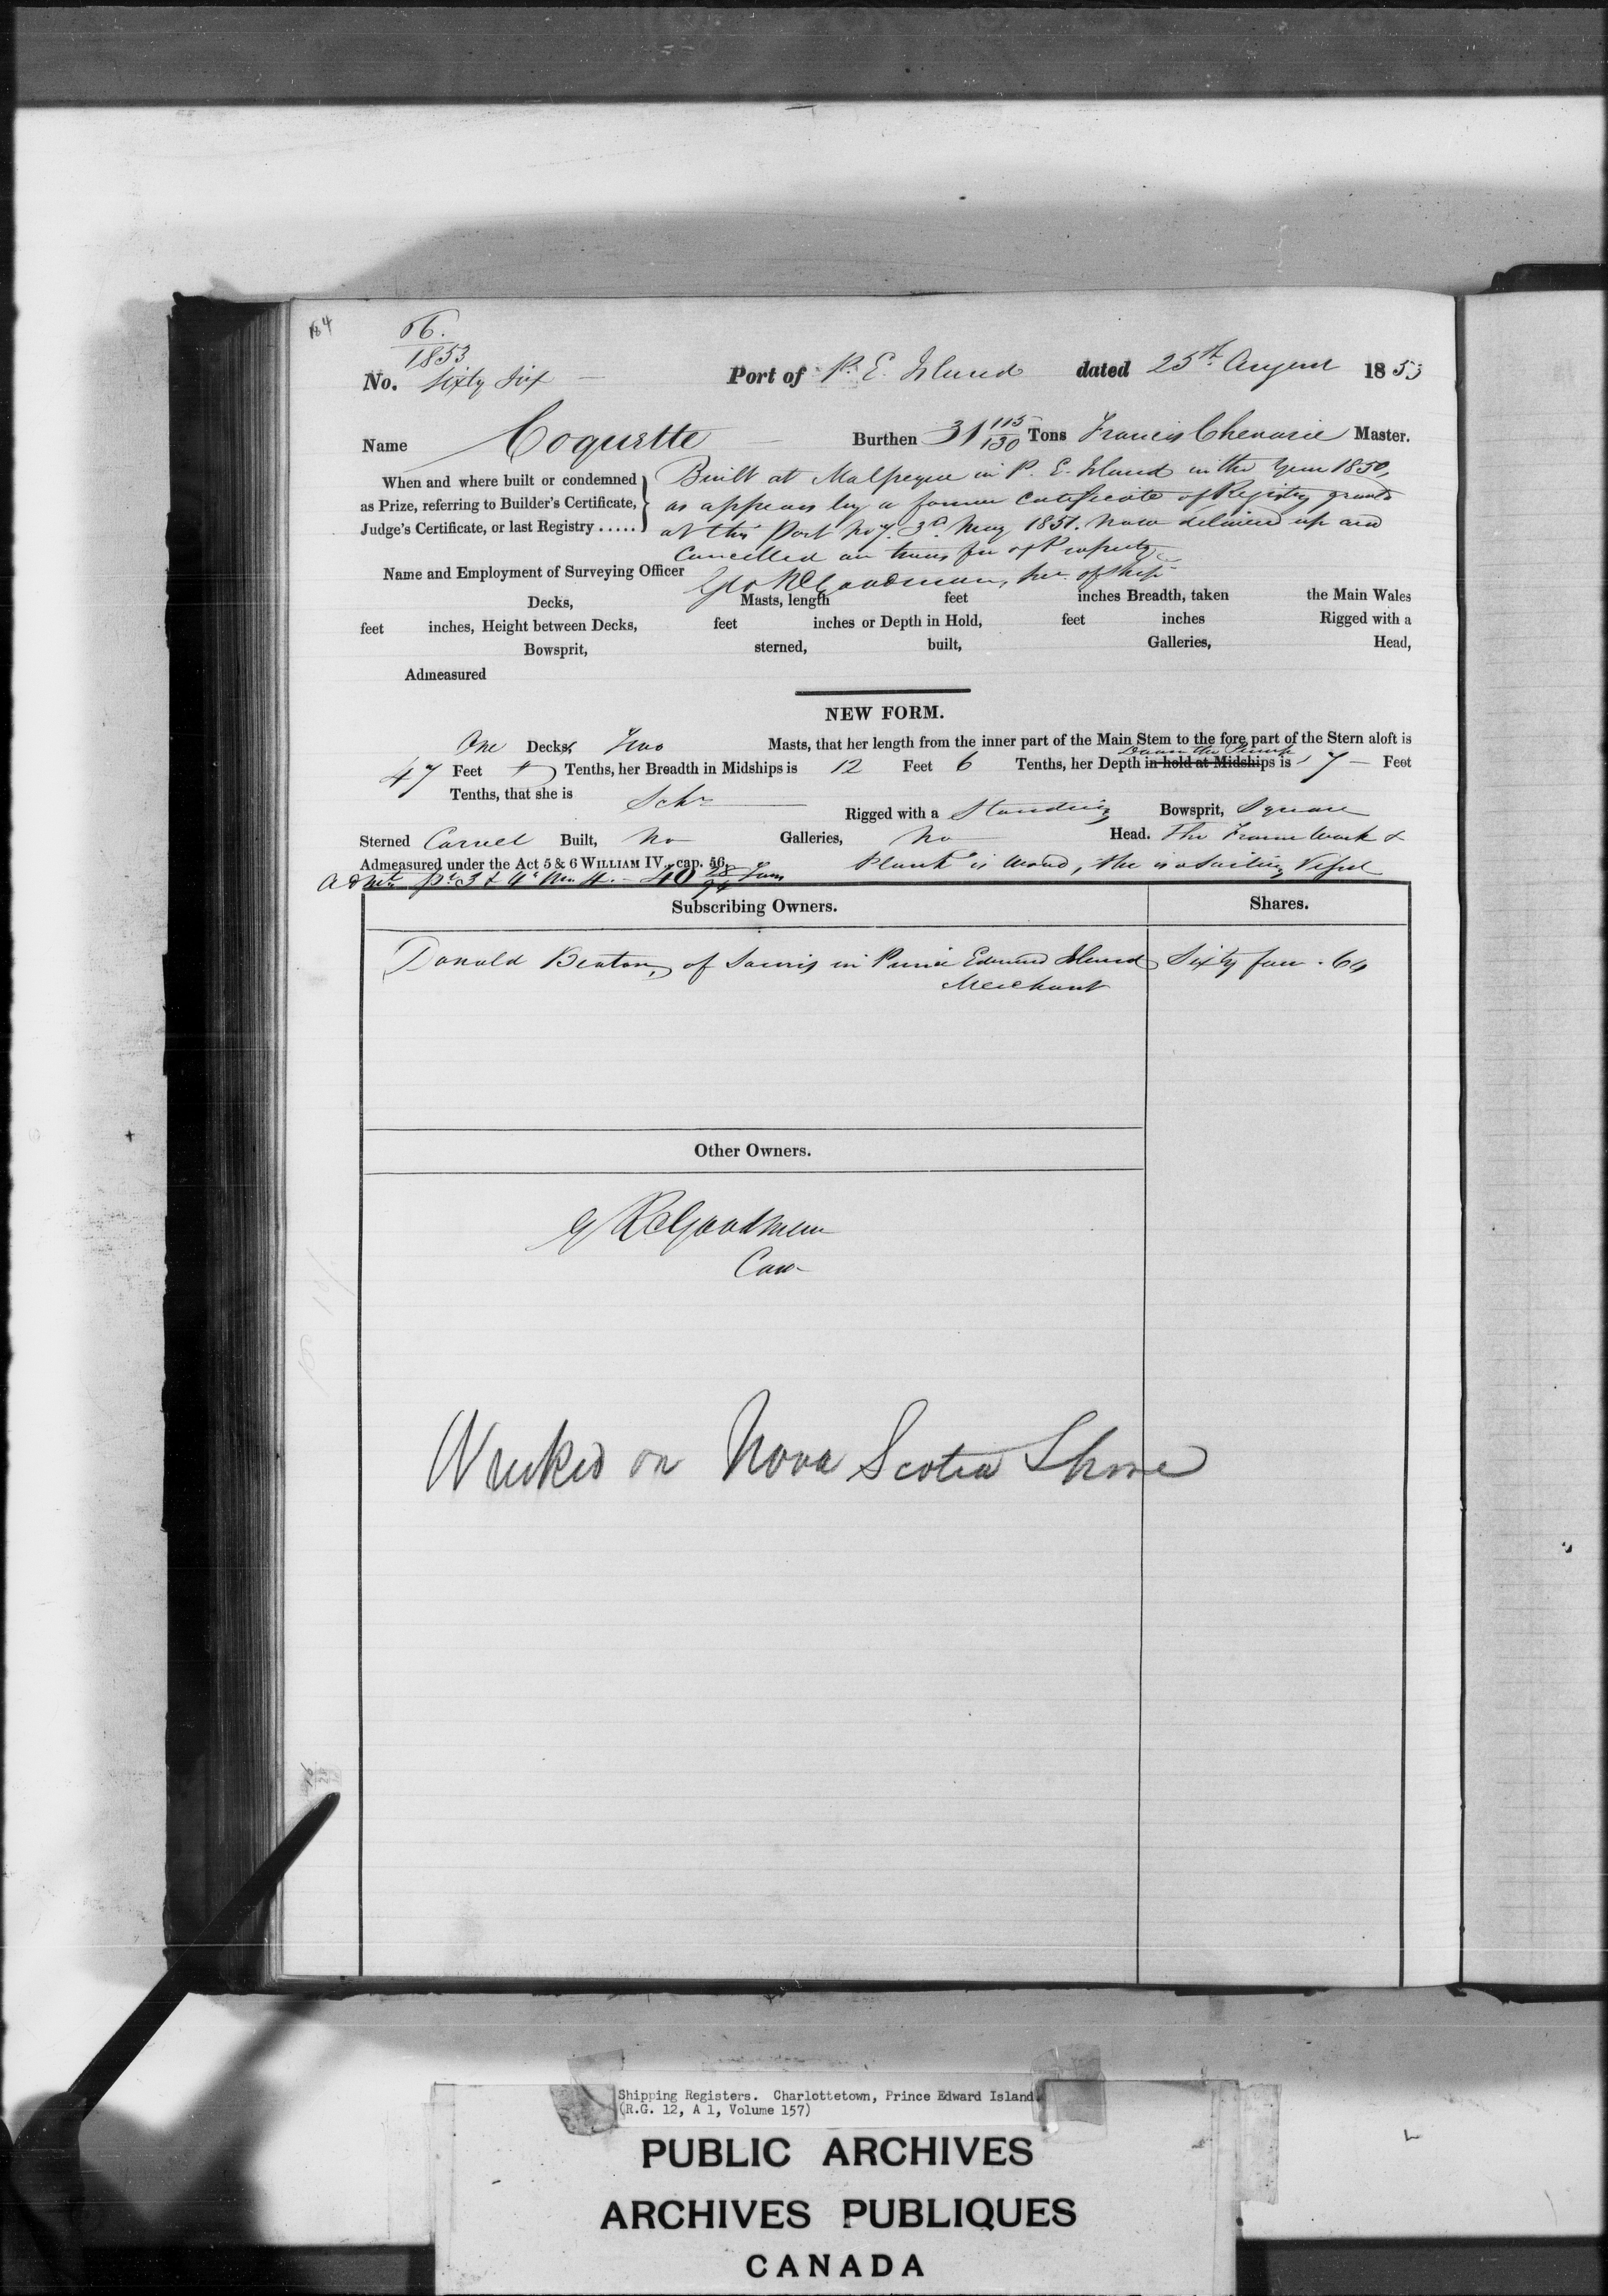 184
66.
1853
No. Sixty Six Port of P. E. Island dated 25th August 1853
Name Coquette Burthen 31 115/130 Tons Francis Chevarie Master.
When and where built or condemned as Prize, referring to Builder's Certificate, Judge's Certificate, or last Registry .....
Built at Malpeque in P. E. Island in the Year 1850,
as appears by a former Certificate of Registry granted
at this Port No 7. 3d May 1851. now delivered up and
Cancelled on transfer of Property
Name and Employment of Surveying Officer Geo R Goodman, Sur. of Ship
Decks, Masts, length feet inches Breadth, taken the Main Wales
feet inches, Height between Decks, feet inches or Depth in Hold, feet inches Rigged with a
Bowsprit, sterned, built, Galleries, Head,
Admeasured
NEW FORM.
One Decks, Two Masts, that her length from the inner part of the Main Stem to the fore part of the Stern aloft is
Down the Pump
47 Feet Tenths, her Breadth in Midships is 12 Feet 6 Tenths, her Depth in hold at Midships is 7 Feet
Tenths, that she is Schr Rigged with a Standing Bowsprit, Square
Sterned Carvel Built, No Galleries, No Head. The Frame Work &
Admeasured under the Act 5 & 6 WILLIAM IV., cap. 56. Plank is Wood, She is a Sailing Vessel
40 28/94 Tons
Subscribing Owners. Shares.
Donald Beaton, of Souris in Prince Edward Island Sixty four . 64
Merchant
Other Owners.
G R Goodman
Wrecked on Nova Scotia Shore
Shipping Registers. Charlottetown, Prince Edward Island.
(R.G. 12, A 1, Volume 157)
PUBLIC ARCHIVES
ARCHIVES PUBLIQUES
CANADA